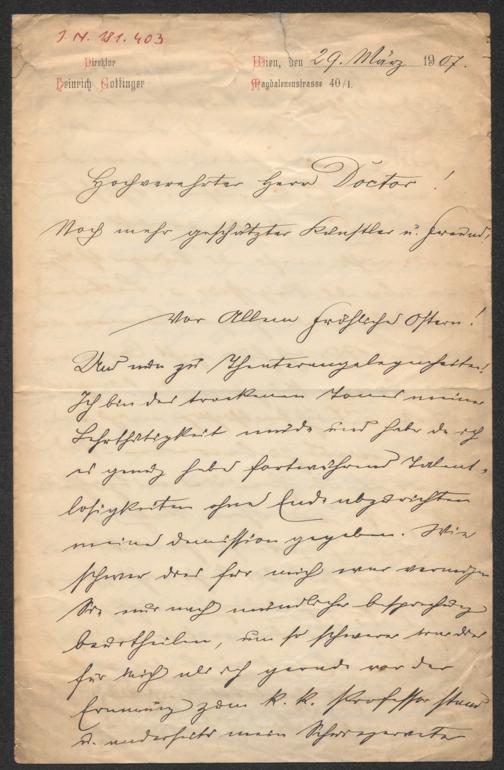 J. N. 181.403
Direktor
Heinrich Gottinger
Wien, den 29. März 1907.
Magdalenenstrasse 40/1.
Hochverehrter Herr Doctor!
Noch mehr geschätzter Künstler u. Freund,
Vor Allem fröhliche Ostern!
Und nun zu Theaterangelegenheiten!
Ich bin des trockenen Tones meiner
Lehrthätigkeit müde und habe da ich
es genug habe fortwährend Talent-
losigkeiten ohne Ende abzurichten
meine Demission gegeben. Wie
schwer dies für mich war vermögen
Sie nur nach mündlicher Besprechung
beurtheilen, um so schwerer war dies
für mich als ich gerade vor der
Ernennung zum k. k. Professor stand
u. anderseits mein Schwiegervater